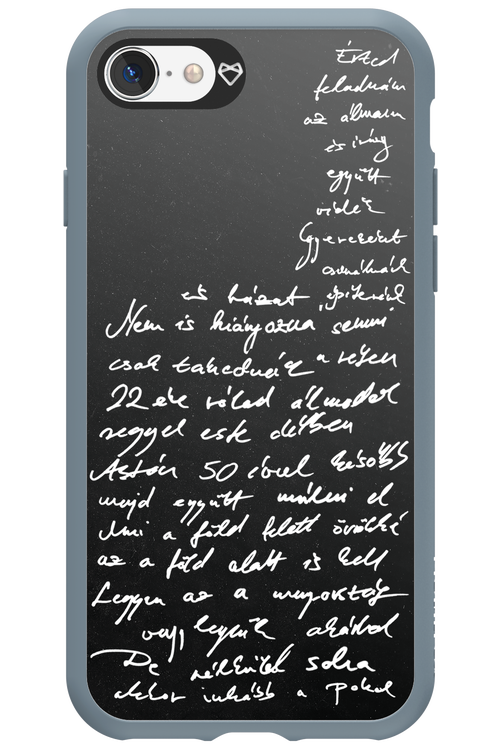 Érted
feladnám
az álmom
és irány
együtt
vidék
Gyerekeket
csinálnánk
és házat építenénk
Nem is hiányozna semmi
csak takednék a veten
22 éve rólad álmodok
reggel este délben
Aztán 50 évvel később
majd együtt múlni el
Ami a föld felett örökké
az a föld alatt is kell
Legyen az a mennyország
vagy legyünk akárhol
De nélküled soha
akkor inkább a Pokol